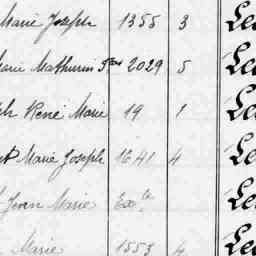 Marie Joseph 1355 3 Le
Marie Mathurin 2029 5 Le
René Marie 19 1 Le
Marie Joseph 1641 4 Le
Jean Marie Le
Marie 1553 4 Le